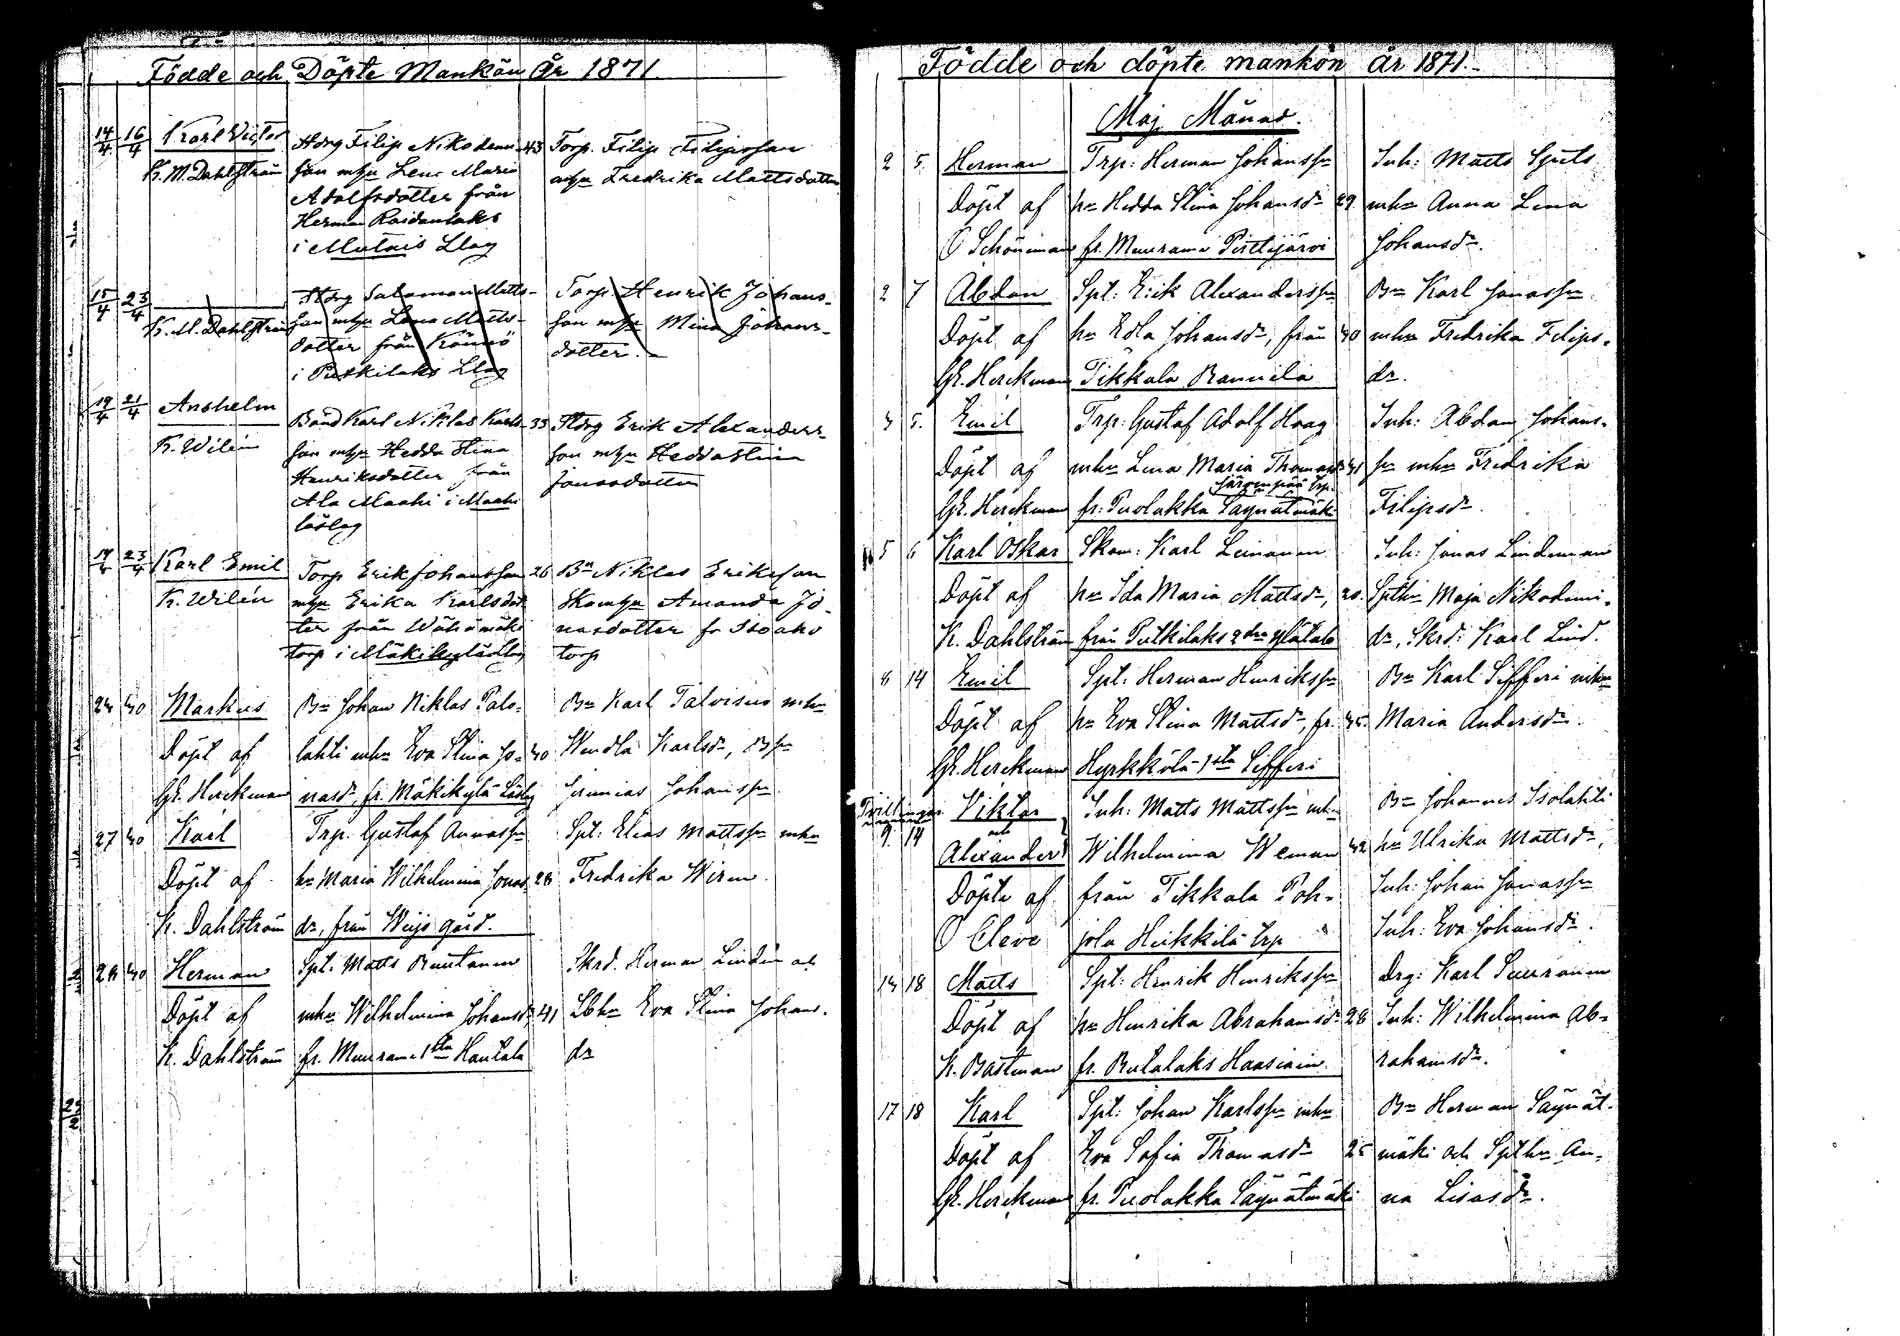 Födde och Döpte Mankön År 1871
14/4 16/4 Karl Victor
K. M. Dahlström
Hdrg Filip Nikodemi- 43
son m hu Lena Maria
Adolfsdotter från
Herman Roidanlaks
i Mutais Llag
Torp. Filip Filipsson
m hu Fredrika Mattsdotter
15/4 23/4
K. M. Dahlström
Hdrg Salomon Matts-
son m hu Lena Matts-
dotter från Könnö
i Putkilaks Llag
Torp. Henrik Johans-
son m hu Mina Johans-
dotter.
19/4 21/4 Anshelm
K. Wilén
Bond Karl Niklas Karls- 33
son m hu Hedda Stina
Henriksdotter från
Ala Maahi i Maahi
läslag
Hdrg Erik Alexanders-
son m hu Hedda Stina
Jonasdotter
19/4 23/4 Karl Emil
K. Wilén
Torp Erik Johansson 26
m hu Erika Karlsdot
ter från Wähämäki
torp i Mäkikylä Llag
Bn Niklas Eriksson
Sko m hu Amanda Jo-
nasdotter fr Isoaho
torp
24 30 Markus
Döpt af
Gk. Herckman
Bn Johan Niklas Palo-
lahti mhu Eva Stina Jo- 40
nasdr, fr. Mäkikylä Läslag
Bn Karl Talvisuo mhu
Wendla Karlsdr, Bsn
Jeremias Johanssn
27 30 Karl
Döpt af
K. Dahlström
Trp. Gustaf Annassn
hu Maria Wilhelmina Jonas 28
dr, från Weijo gård.
Spt: Elias Mattssn mhu
Fredrika Wiren
28 30 Herman
Döpt af
K. Dahlström
Spt: Matts Ruustanen
mhu Wilhelmina Johansdr 41
fr. Muurame 1sta Hautala
Skrd. Herman Lindén och
Lbhu Eva Stina Johans-
dr
Födde och döpte mankön år 1871.
Maj Månad.
2 5. Herman
Döpt af
O Schöneman
Trp: Herman Johanssn
hu Hedda Stina Johansdr 29
fr. Muurame Pirttijärvi
Inh: Matts Sjuts
mhu Anna Lena
Johansdr.
2 7 Abdon
Döpt af
Gk. Herckman
Spt: Erik Alexanderssn
hu Edla Johansdr, från 30
Tikkala Rannila
Bn Karl Jonassn
mhu Fredrika Filips-
dr.
3 5. Emil
Döpt af
Gk. Herckman
Trp: Gustaf Adolf Haag
mhu Lena Maria Thomasdr 31
Järvenpää trp.
fr: Puolakka Säynätmäki
Inh: Abdon Johans-
sn mhu Fredrika
Filipsdr
5 6 Karl Oskar
Döpt af
K. Dahlström
Skom: Karl Leinonen
hu Ida Maria Mattsdr, 20.
från Putkilaks 2dra Ylätalo
Inh: Jonas Lindeman
Spthu Maja Nikodemi-
dr, Skrd: Karl Lind.
8 14 Emil
Döpt af
Gk. Herckman
Spt: Herman Henrikssn
hu Eva Stina Mattsdr, fr. 35.
Hyrkkölä 1sta Sifferi
Bn Karl Sifferi mhu
Maria Andersdr.
Tvillingar
9 14 Viktor
och
Alexander
Döpte af
O Cleve
Inh: Matts Mattssn mhu
Wilhelmina Weman 32
från Tikkala Poh-
jola Heikkilä trp
Bn Johannes Isolahti
hu Ulrika Mattsdr,
Inh: Johan Jonassn
Inh: Eva Johansdr.
14 18 Matts
Döpt af
K. Bastman
Spt: Henrik Henrikssn
hu Henrika Abrahamsdr 28
fr. Rutalaks Haasiain.
Drg: Karl Suuronen
Inh: Wilhelmina Ab-
rahamsdr.
17 18 Karl
Döpt af
Gk. Herckman
Spt: Johan Karlssn mhu
Eva Sofia Thomasdr 25
fr. Puolakka Säynätmäki
Bn Herman Säynät-
mäki och Spthu An-
na Lisasdr.